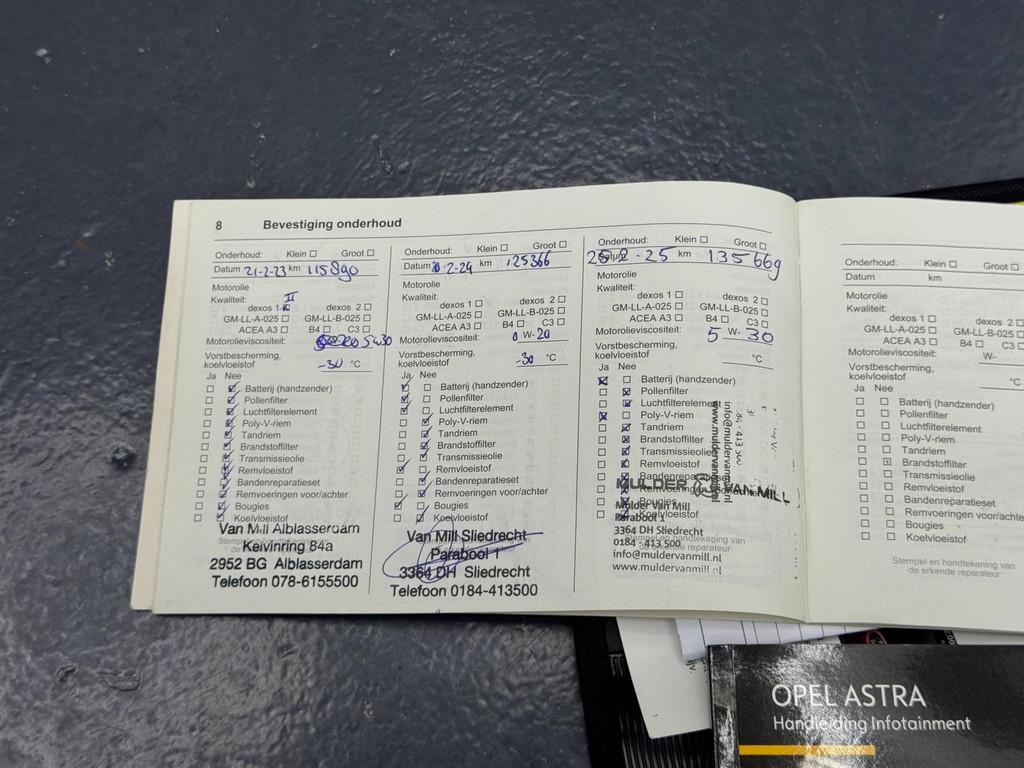 8 Bevestiging onderhoud
Onderhoud: Klein ☐ Groot ☐
Datum 21-2-23 km 115890
Motorolie
Kwaliteit: II
dexos 1 ☒ dexos 2 ☐
GM-LL-A-025 ☐ GM-LL-B-025 ☐
ACEA A3 ☐ B4 ☐ C3 ☐
Motorolieviscositeit: 5w30
Vorstbescherming,
koelvloeistof -30 °C
Ja Nee
☐ ☑ Batterij (handzender)
☐ ☑ Pollenfilter
☐ ☑ Luchtfilterelement
☐ ☑ Poly-V-riem
☐ ☑ Tandriem
☐ ☑ Brandstoffilter
☐ ☑ Transmissieolie
☐ ☑ Remvloeistof
☐ ☑ Bandenreparatieset
☐ ☑ Remvoeringen voor/achter
☐ ☑ Bougies
☐ ☑ Koelvloeistof
Van Mill Alblasserdam
Kelvinring 84a
2952 BG Alblasserdam
Telefoon 078-6155500
Onderhoud: Klein ☐ Groot ☐
Datum 2-24 km 125366
Motorolie
Kwaliteit:
dexos 1 ☐ dexos 2 ☐
GM-LL-A-025 ☐ GM-LL-B-025 ☐
ACEA A3 ☐ B4 ☐ C3 ☐
Motorolieviscositeit: 0 W-20
Vorstbescherming,
koelvloeistof -30 °C
Ja Nee
☑ ☐ Batterij (handzender)
☑ ☐ Pollenfilter
☑ ☐ Luchtfilterelement
☐ ☑ Poly-V-riem
☐ ☑ Tandriem
☐ ☑ Brandstoffilter
☐ ☑ Transmissieolie
☑ ☐ Remvloeistof
☐ ☑ Bandenreparatieset
☐ ☑ Remvoeringen voor/achter
☑ ☐ Bougies
☐ ☑ Koelvloeistof
Van Mill Sliedrecht
Parabool 1
3364 DH Sliedrecht
Telefoon 0184-413500
Onderhoud: Klein ☐ Groot ☐
Datum 2-25 km 135669
Motorolie
Kwaliteit:
dexos 1 ☐ dexos 2 ☐
GM-LL-A-025 ☐ GM-LL-B-025 ☐
ACEA A3 ☐ B4 ☐ C3 ☐
Motorolieviscositeit: 5 W- 30
Vorstbescherming,
koelvloeistof °C
Ja Nee
☒ ☐ Batterij (handzender)
☐ ☒ Pollenfilter
☐ ☑ Luchtfilterelement
☒ ☐ Poly-V-riem
☐ ☒ Tandriem
☐ ☒ Brandstoffilter
☐ ☒ Transmissieolie
☐ ☒ Remvloeistof
☐ ☒ Bandenreparatieset
☐ ☒ Remvoeringen
☐ ☒ Bougies
☐ ☒ Koelvloeistof
MULDER VAN MILL
Mulder Van Mill
Parabool 1
3364 DH Sliedrecht
0184 - 413 500
Stempel en handtekening van
de erkende reparateur
info@muldervanmill.nl
www.muldervanmill.nl
info@muldervanmill.nl
www.muldervanmill.nl
Onderhoud: Klein ☐ Groot ☐
Datum km
Motorolie
Kwaliteit:
dexos 1 ☐ dexos 2 ☐
GM-LL-A-025 ☐ GM-LL-B-025 ☐
ACEA A3 ☐ B4 ☐ C3 ☐
Motorolieviscositeit: W-
Vorstbescherming,
koelvloeistof °C
Ja Nee
☐ ☐ Batterij (handzender)
☐ ☐ Pollenfilter
☐ ☐ Luchtfilterelement
☐ ☐ Poly-V-riem
☐ ☐ Tandriem
☐ ☐ Brandstoffilter
☐ ☐ Transmissieolie
☐ ☐ Remvloeistof
☐ ☐ Bandenreparatieset
☐ ☐ Remvoeringen voor/achter
☐ ☐ Bougies
☐ ☐ Koelvloeistof
Stempel en handtekening van
de erkende reparateur
OPEL ASTRA
Handleiding Infotainment